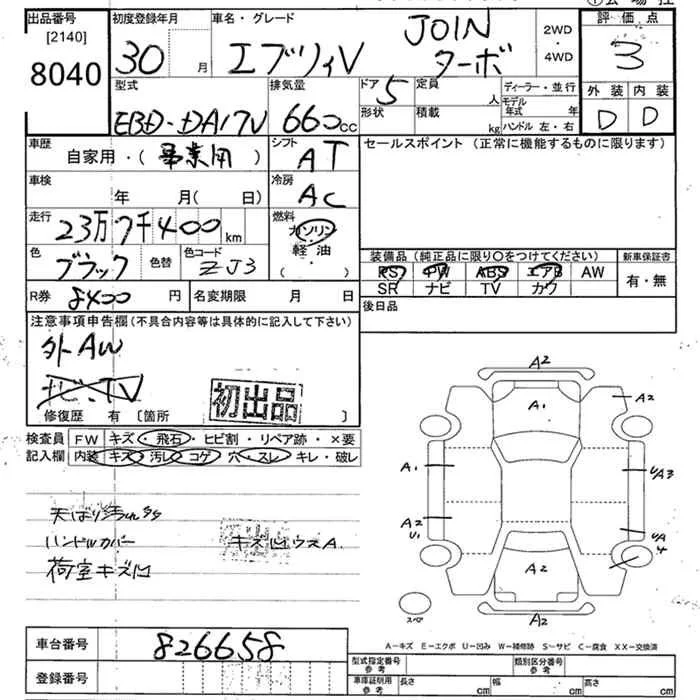 出品番号
[2140]
8040
初度登録年月
30 月
車名・グレード
エブリィV JOIN ターボ
2WD
・
4WD
評価点
3
外装 内装
D D
型式
EBD-DA17V
排気量
660cc
ドア 5
形状
定員 人
積載 kg
ディーラー・並行
モデル年式 年
ハンドル 左・右
車歴
自家用・(事業用)
シフト
AT
セールスポイント(正常に機能するものに限ります)
車検
年 月(日)
冷房
AC
走行
23万7千400km
燃料
ガソリン
軽油
( ・ )
色
ブラック
色替
色コード
ZJ3
装備品(純正品に限り○をつけてください)
PS PW ABS エアB AW
SR ナビ TV カワ
新車保証書
有・無
R券 8400円
名変期限 月 日
後日品
注意事項申告欄(不具合内容等は具体的に記入して下さい)
外AW
ナビ、TV
初出品
修復歴 有 [箇所 ]
検査員
記入欄
FW キズ・飛石・ヒビ割・リペア跡・×要
内装 キズ・汚レ・コゲ・穴・スレ・キレ・破レ
ハンドルカバー
荷室キズ凹
A2
A1
A2
A1
A2
U1
A2
A2
スペア
A-キズ E-エクボ U-凹み W-補修跡 S-サビ C-腐食 XX-交換済
車台番号
826658
登録番号
型式指定番号
参考
類別区分番号
参考
車庫証明用
参考
長さ cm
幅 cm
高さ cm